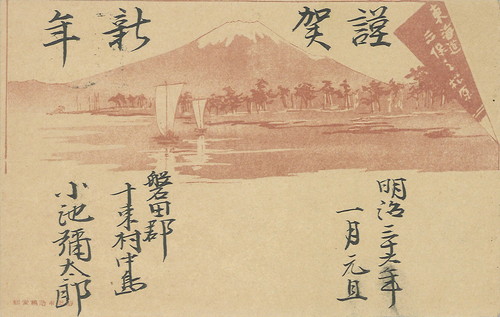 謹賀新年
東海道
三保之松原
明治三十六年
一月元旦
磐田郡
十束村中島
小池彌太郎